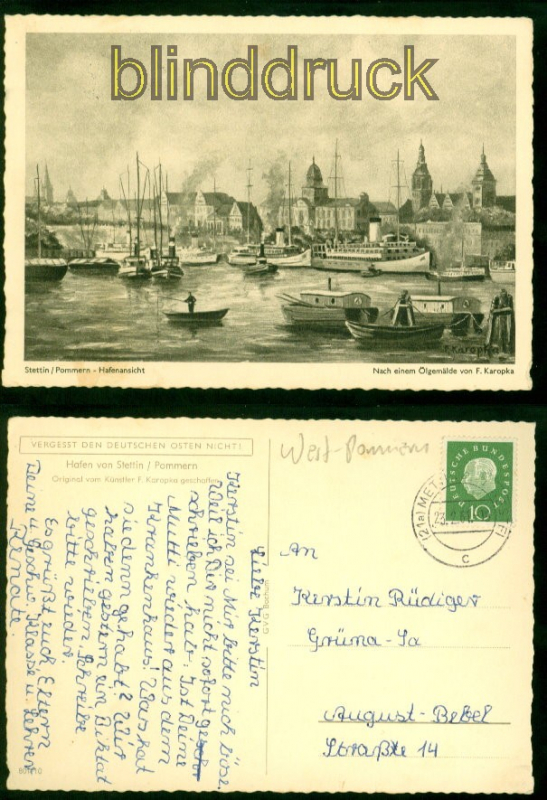 blinddruck
F. Karopka
Stettin / Pommern - Hafenansicht
Nach einem Ölgemälde von F. Karopka
VERGESST DEN DEUTSCHEN OSTEN NICHT!
Hafen von Stettin / Pommern
Original vom Künstler F. Karopka geschaffen
West-Pommern
DEUTSCHE BUNDESPOST
10
(21a) MET
c
Liebe Kerstin
Kerstin sei Mir bitte nich böse.
Weil ich Dir nicht sofort ge
schrieben hab. Ist Deine
Mutti wieder aus dem
Krankenhaus! Was hat
sie denn gehabt? Wir
haben gestern ein Diktat
geschrieben. Schreibe
bitte wieder.
Es grüßt euch Eltern
Deine u. Geschw. Klasse u. Lehrer
Renate.
An
Kerstin Rüdiger
Grüna-Sa
August-Bebel
Straße 14